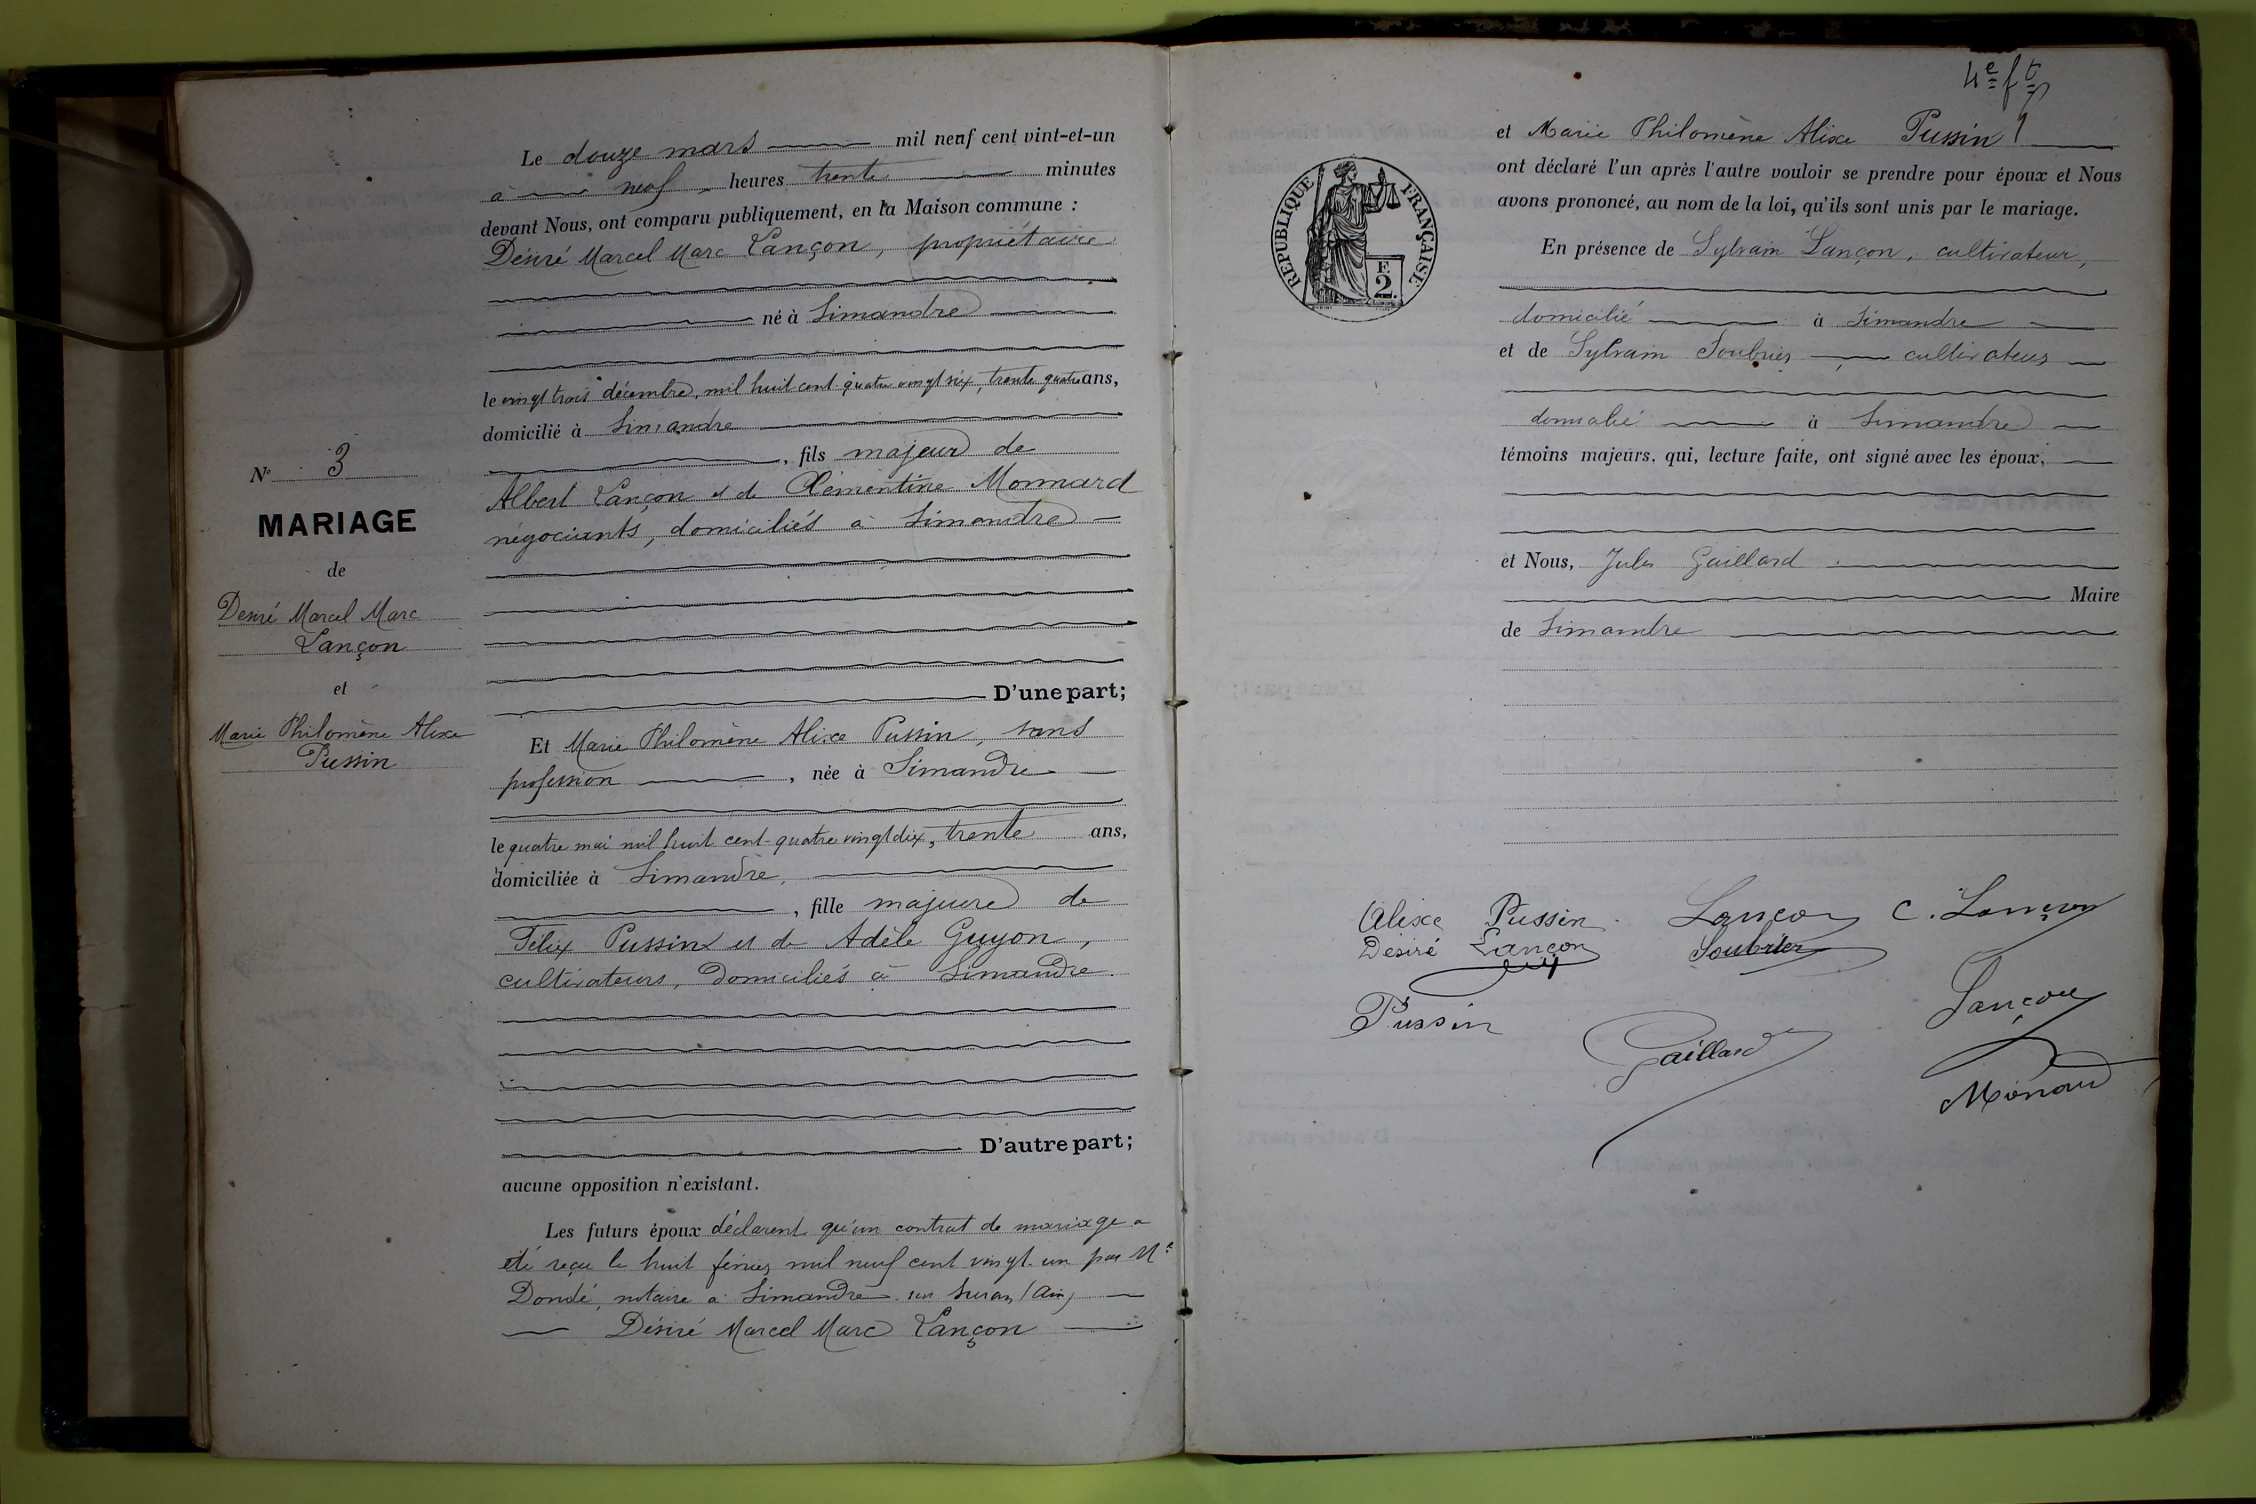 N° 3
MARIAGE
de
Désiré Marcel Marc
Lançon
et
Marie Philomène Alixe
Pussin
Le douze mars mil neuf cent vint-et-un
à neuf heures trente minutes
devant Nous, ont comparu publiquement, en la Maison commune :
Désiré Marcel Marc Lançon, propriétaire
né à Simandre
le vingt trois décembre, mil huit cent quatre vingt six, trente quatre ans,
domicilié à Simandre
, fils majeur de
Albert Lançon et de Clémentine Monnard
négociants, domiciliés à Simandre
D'une part;
Et Marie Philomène Alixe Pussin, sans
profession , née à Simandre
le quatre mai mil huit cent quatre vingt dix, trente ans,
domiciliée à Simandre,
, fille majeure de
Félix Pussin et de Adèle Guyon,
cultivateurs, domiciliés à Simandre.
D'autre part;
aucune opposition n'existant.
Les futurs époux déclarent qu'un contrat de mariage a
été reçu le huit février mil neuf cent vingt un par Me
Dondé, notaire à Simandre sur Suran (Ain)
Désiré Marcel Marc Lançon
4e ft
et Marie Philomène Alixe Pussin
ont déclaré l'un après l'autre vouloir se prendre pour époux et Nous
avons prononcé, au nom de la loi, qu'ils sont unis par le mariage.
RÉPUBLIQUE FRANÇAISE
F.
2.
En présence de Sylvain Lançon, cultivateur,
domicilié à Simandre
et de Sylvain Soubrier, cultivateur
domicilié à Simandre
témoins majeurs, qui, lecture faite, ont signé avec les époux,
et Nous, Jules Gaillard
Maire
de Simandre
Alixe Pussin Lançon C. Lançon
Désiré Lançon Soubrier
Lançon
Pussin
Gaillard
Monard